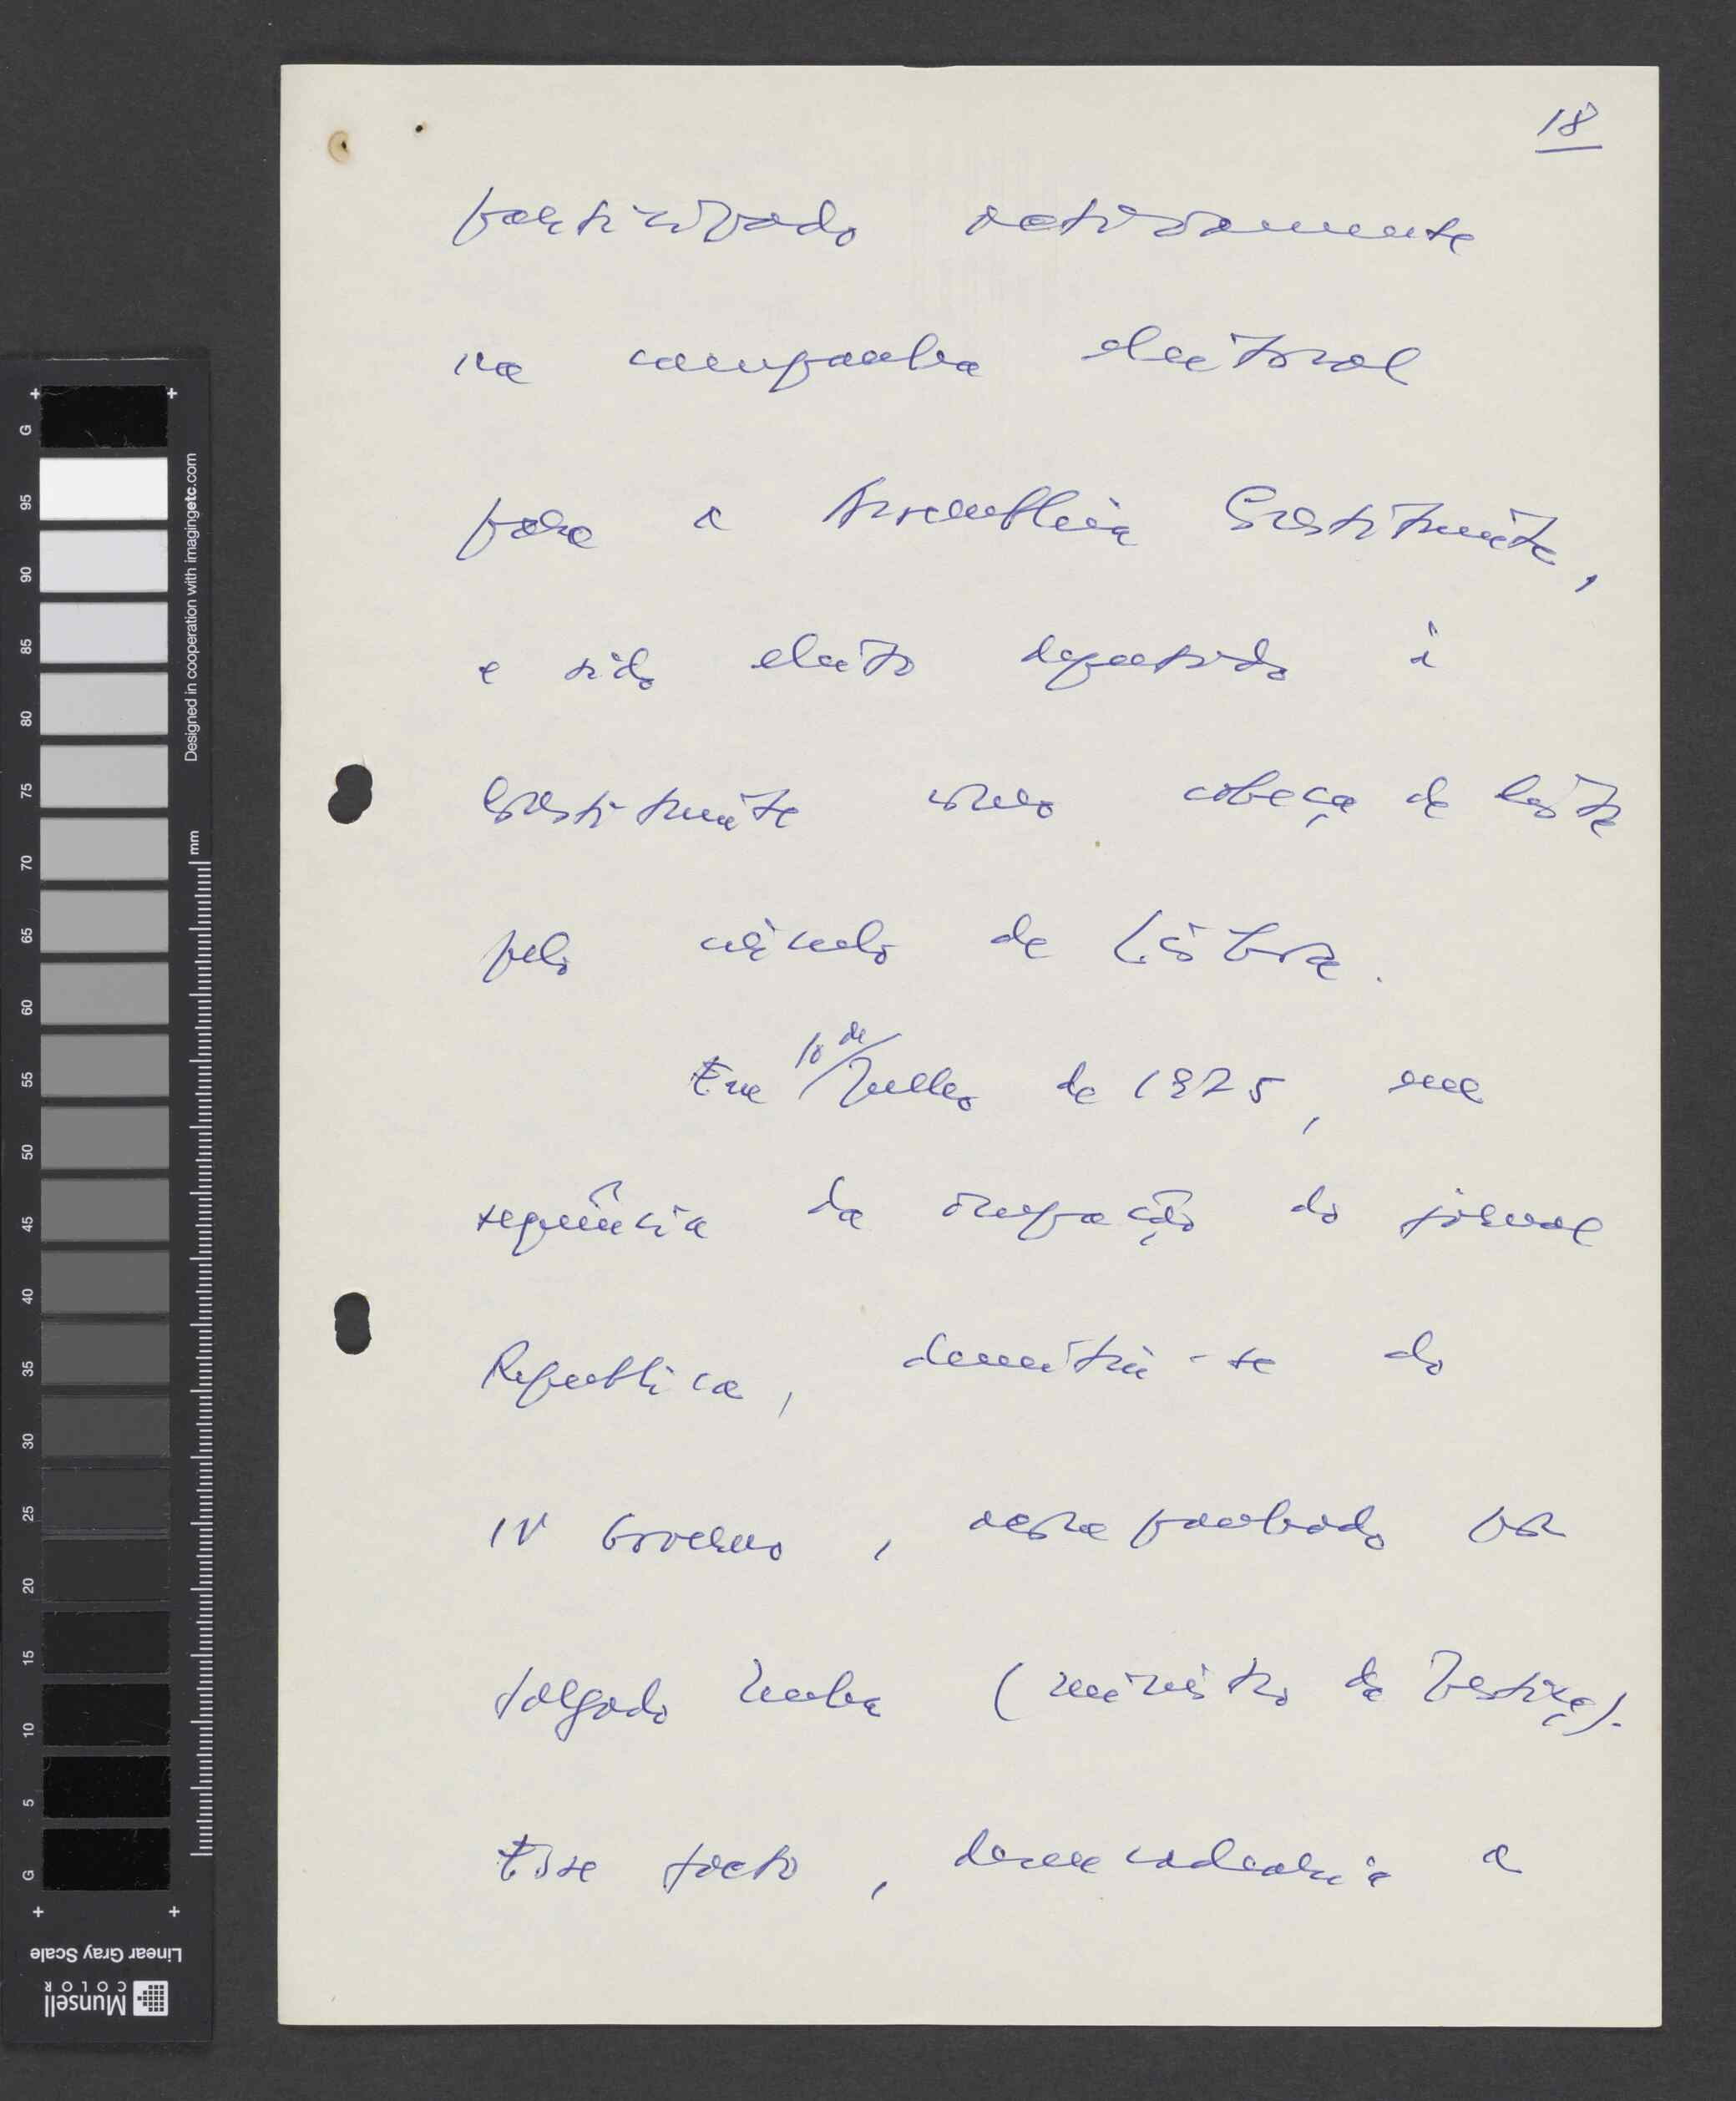 18
participado activamente
na campanha eleitoral
para a Assembleia Constituinte,
e sido eleito deputado à
Constituinte como cabeça de lista
pelo círculo de Lisboa.
10 de
Em Julho de 1975, em
sequência da ocupação do jornal
República, demitiu-se do
IV Governo, acompanhado por
Salgado Zenha (ministro da Justiça).
Esse facto, desencadearia a
G
95
90
85
80
75
70
65
60
55
50
45
40
35
30
25
20
15
10
5
G
Designed in cooperation with imagingetc.com
mm
Linear Gray Scale
Munsell
COLOR